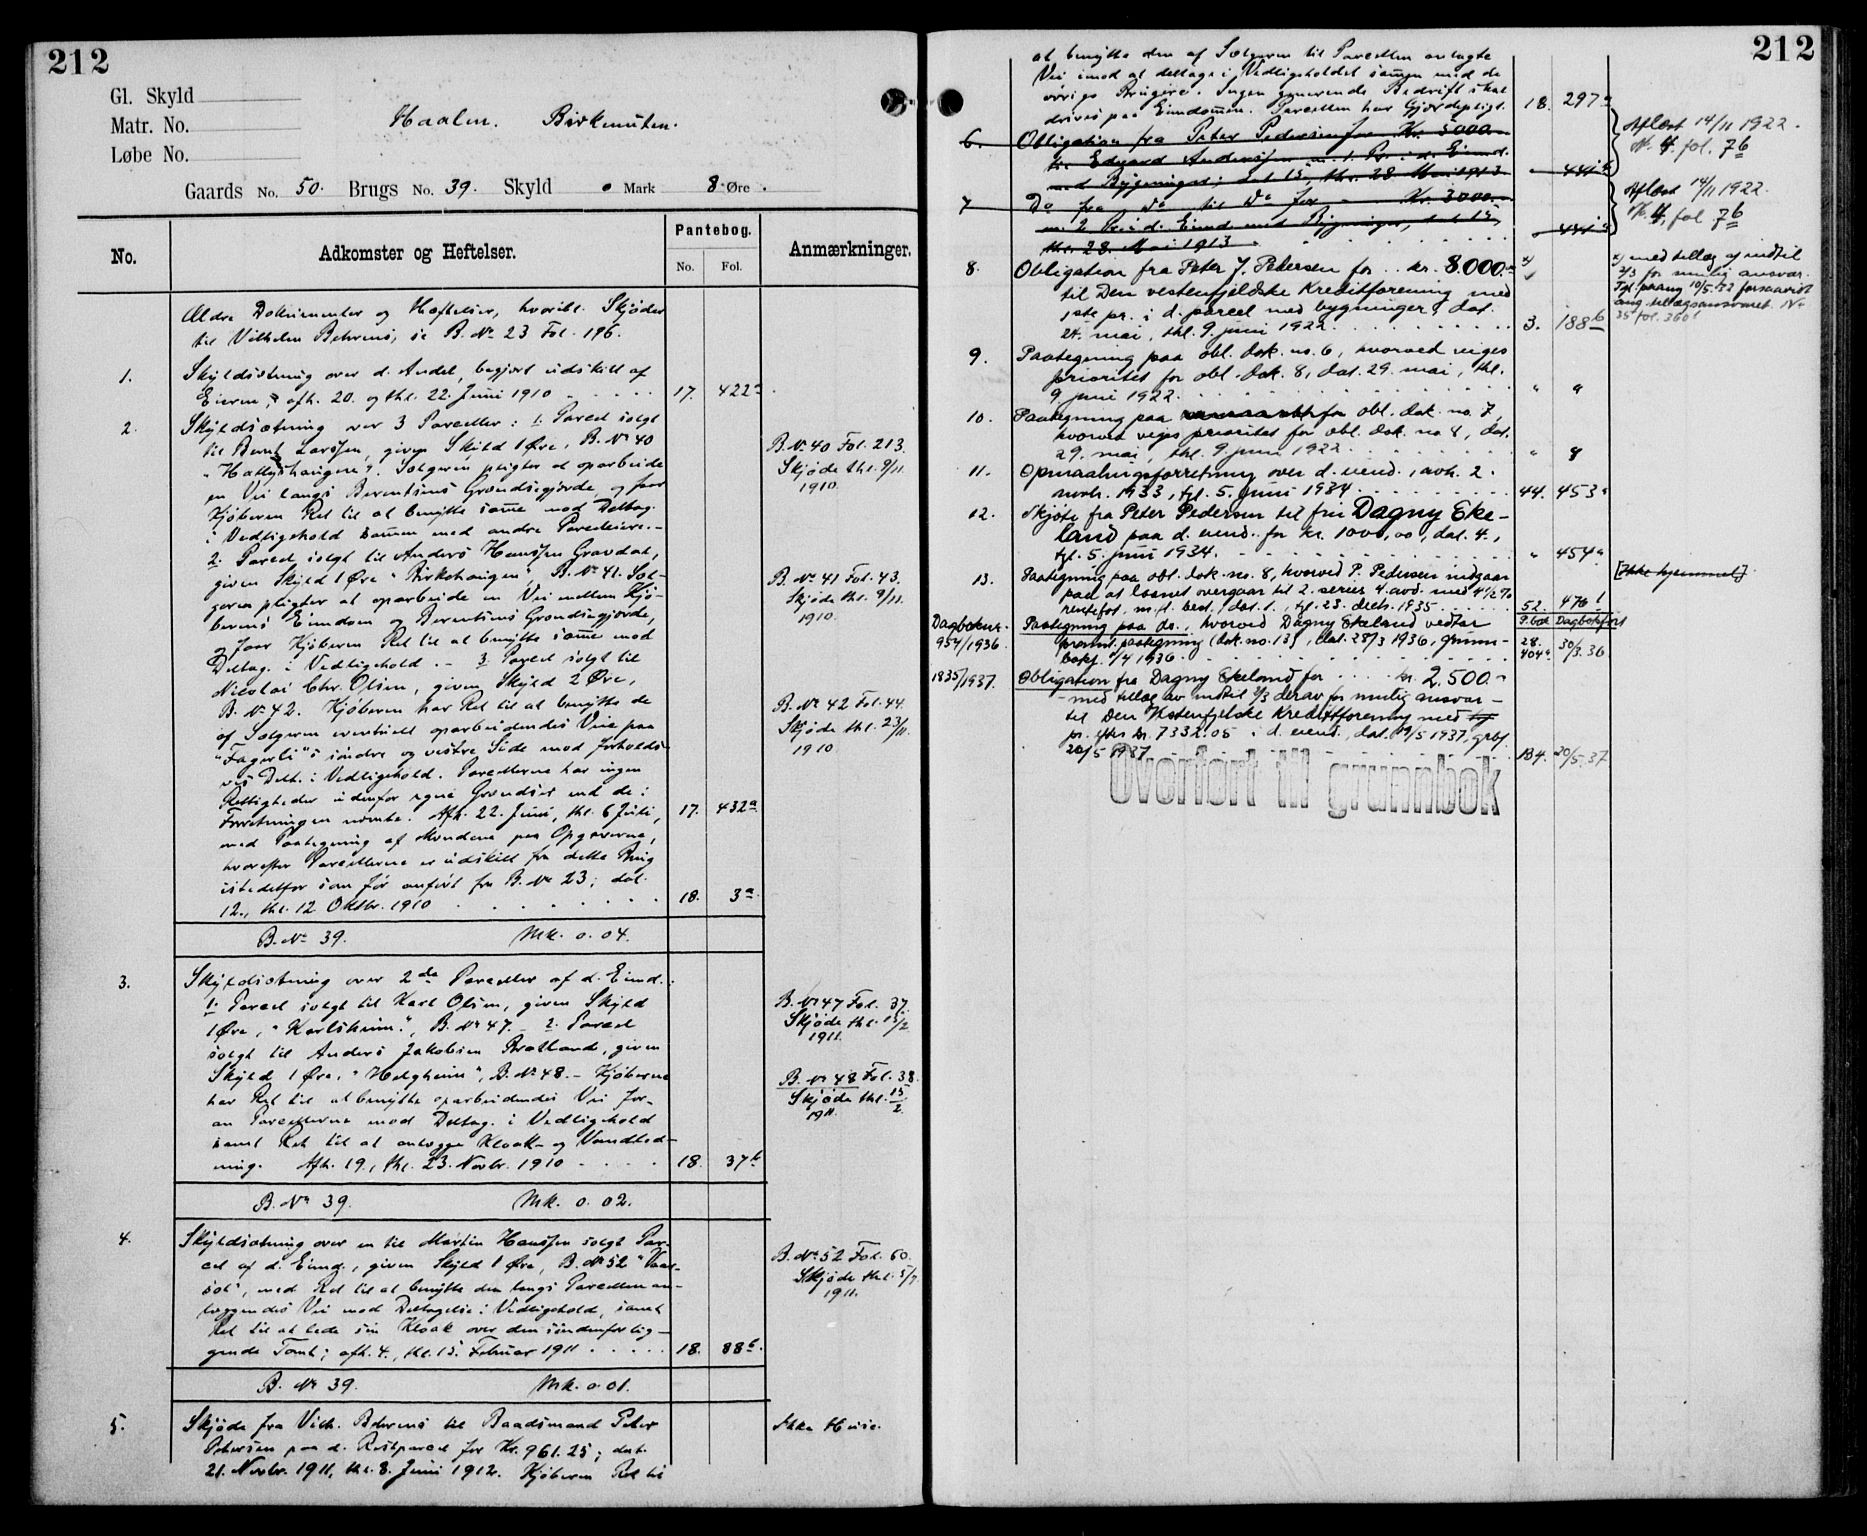 212
Gl. Skyld
Matr. No.
Løbe No.
Haalen. Birkenuten.
Gaards No. 50. Brugs No. 39. Skyld " Mark 8 Øre.
No.
Adkomster og Heftelser.
Pantebog.
No. Fol.
Anmærkninger.
Ældre Dokumenter og Heftelser, hvoribl. Skjøder
til Vilhelm Behrens, se B. No 23 Fol. 196.
1. Skyldsætning over d. Andel, begjært udskilt af
Eieren, afh. 20. og thl. 22. Juni 1910 17. 422a
2. Skyldsætning over 3 Parceller: 1. Parcel solgt
til Bernt Larssen, given Skyld 1 Øre, B. No 40
Sælgeren pligter at oparbeide
en Vei langs Berentsens Grændsegjærde, og faar
Kjøberen Ret til at benytte samme mod Deltag.
i Vedligehold sammen med andre Parceleiere. –
2. Parcel solgt til Anders Hanssen Gravdal,
given Skyld 1 Øre "Birkehaugen", B. No 41. Sæl-
geren pligter at oparbeide en Vei mellem Kjø-
berens Eiendom og Berentsens Grændsegjærde,
og faar Kjøberen Ret til at benytte samme mod
Deltag. i Vedligehold. – 3. Parcel solgt til
Nicolai Chr. Olsen, given Skyld 2 Øre,
B. No 42. Kjøberen har Ret til at benytte de
af Sælgeren eventuelt oparbeidendes Veie paa
"Fagerli"s søndre og vestre Side mod forholds-
vis Delt. i Vedligehold. Parcellerne har ingen
Rettigheder udenfor egne Grændser end de i
Forretningen nævnte. Afh. 22. Juni, thl. 6 Juli, 17. 432a
med Paategning af Mændene paa Opgaverne,
hvorefter Parcellerne er udskilt fra dette Brug
istedetfor som før anført fra B. No 23; dat.
12., thl. 12 Oktbr. 1910 18. 3a
B. No 40 Fol. 213.
Skjøde thl. 9/11.
1910.
B. No 41 Fol. 43.
Skjøde thl. 9/11.
1910.
B. No 42 Fol. 44.
Skjøde thl. 23/11.
1910.
B. No 39. Mk. 0. 04.
3. Skyldsætning over 2de Parceller af d. Eiend.:
1. Parcel solgt til Karl Olsen, given Skyld
1 Øre, "Karlsheim", B. No 47. – 2. Parcel
solgt til Anders Jakobsen Bratland, given
Skyld 1 Øre, "Helgheim", B. No 48. – Kjøberne
har Ret til at benytte oparbeidendes Vei for-
an Parcellerne mod Deltag. i Vedligehold
samt Ret til at anlægge Kloak- og Vandled-
ning. Afh. 19., thl. 23. Novbr. 1910 18. 37b
B. No 47 Fol. 37.
Skjøde thl. 15/2
1911.
B. No 48 Fol. 38.
Skjøde thl. 15/2
1911.
B. No 39. Mk. 0. 02.
4. Skyldsætning over en til Martin Hanssen solgt Par-
cel af d. Eiend., given Skyld 1 Øre, B. No 52 "Vaar-
sol", med Ret til at benytte den langs Parcellen an-
læggendes Vei mod Deltagelse i Vedligehold, samt
Ret til at lede sin Kloak over den søndenforlig-
gende Tomt; afh. 4., thl. 15. Februar 1911 18. 88b.
B. No 52 Fol. 60.
Skjøde thl. 5/7
1911.
B. No 39. Mk. 0. 01.
5. Skjøde fra Vilh. Behrens til Baadsmand Peter
Pedersen paa d. Restparcel for Kr. 961.25; dat.
21. Novbr. 1911, thl. 8. Juni 1912. Kjøberen Ret til
Ikke Huse.
212
at benytte den af Sælgeren til Parcellen anlagte
Vei imod at deltage i Vedligeholdet sammen med de
øvrige Brugere. Ingen generende Bedrift skal
drives paa Eiendommen. Parcellen har Gjerdepligt. 18. 297a
6. Obligation fra Peter Pedersen for Kr. 5000
til Edvard Anderssen m. 1. Pr. i d. Eiend.
med Bygninger; dat. 15., thl. 28. Mai 1913 " 441
Aflæst 14/11 1922.
N. 4. fol. 76
7 Do fra do til do for Kr. 3000.–
m. 2. Pr. i d. Eiend. med Bygninger, dat. 15.,
thl. 28. Mai 1913. " 441
Aflæst 14/11 1922.
N. 4, fol 76
8. Obligation fra Peter J. Pedersen for kr. 8000.–
til Den vestenfjeldske Kreditforening med
1ste pr. i d. parcel med bygninger, dat.
24. mai, thl. 9. juni 1922. 3. 188b
x) med tillæg af indtil
2/3 for mulig ansvar.
Tgl. paateg 10/5-
ang. tillægsansvaret. No
35 fol. 360
9. Paategning paa obl. dok. no. 6, hvorved viges
prioritet for obl. dok. 8, dat. 29. mai, thl.
9. juni 1922. " "
10. Paategning paa obl. dok. no. 7,
hvorved viges prioritet for obl. dok. no 8, dat.
29. mai, thl. 9. juni 1922. " "
11. Opmaalingsforretning over d. eiend., avh. 2.
novbr. 1933, tgl. 5. juni 1934. 44. 453a
12. Skjøte fra Peter Pedersen til fru Dagny Eke-
land paa d. eiend. for kr. 1000,00, dat. 4.,
tgl. 5. juni 1934. " 454a
13. Paategning paa obl. dok. no. 8, hvorved P. Pedersen indgaar
paa at laanet overgaar til 2. series 4. avd. med 4 1/2 %
rentefot, m. d. best., dat. 1., tgl. 23. decbr. 1935. 52. 476
[Ikke hjemmel]
P.bok Dagbokført
Dagboknr.
954/1936. Paategning paa do., hvorved Dagny Ekeland vedtar
foranst. paategning (dok. no. 13), dat. 28/3 1936, grunn-
bokf. 1/4 1936. 28. 404a 30/3. 36
1835/1937. Obligation fra Dagny Ekeland for kr. 2,500.–
– med tillæg av indtil 2/3 derav for mulig ansvar –
til Den Vestenfjelske Kreditforening med
pr. efter kr. 7332.05 i d. eiend., dat. 19/5 1937, grbf.
20/5 1937. 184. 20/5. 37
Overført til grunnbok